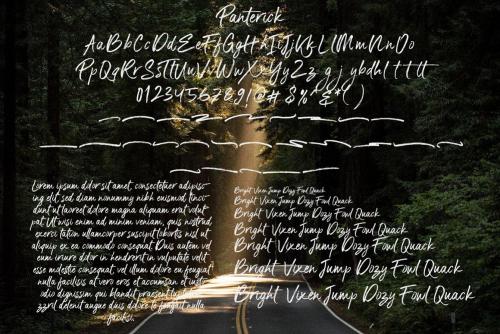 Panterick
AaBbCcDdEeFfGgHhIiJjKkLlMmNnOo
PpQqRrSsTtUuVvWwXxYyZz g j y b d h l t t tt
0123456789!@#$%^&*()
Lorem ipsum dolor sit amet, consectetuer adipisc-
ing elit, sed diam nonummy nibh euismod tinci-
dunt ut laoreet dolore magna aliquam erat volut-
pat. Ut wisi enim ad minim veniam, quis nostrud
exerci tation ullamcorper suscipit lobortis nisl ut
aliquip ex ea commodo consequat. Duis autem vel
eum iriure dolor in hendrerit in vulputate velit
esse molestie consequat, vel illum dolore eu feugiat
nulla facilisis at vero eros et accumsan et iusto
odio dignissim qui blandit praesent luptatum
zzril delenit augue duis dolore te feugait nulla
facilisi.
Bright Vixen Jump Dozy Fowl Quack
Bright Vixen Jump Dozy Fowl Quack
Bright Vixen Jump Dozy Fowl Quack
Bright Vixen Jump Dozy Fowl Quack
Bright Vixen Jump Dozy Fowl Quack
Bright Vixen Jump Dozy Fowl Quack
Bright Vixen Jump Dozy Fowl Quack